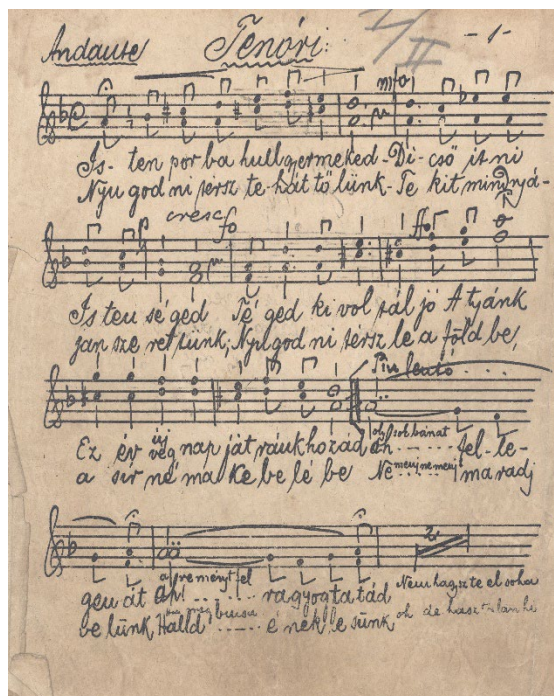 Andante Tenóri I/II -1-
mfo
Is-ten por ba hull gyermeked-Di-cső it ni
Nyu god ni térsz te-hát tő lünk-Te kit mindnyá-
cresc fo p ffo
Is ten sé ged Té ged ki vol tál jó A tyánk
jan sze ret tünk, Nyu god ni térsz le a föld be,
Piu lentó
Ez év új nap ját ránk hozád
vég
a sír né ma Ke be lé be Ne menj ne menj maradj
fel-le-
gen át Ah! ...... ra gyog ta tád Nem hagsz te el soha
be lünk Halld ...... é nek le sünk oh de